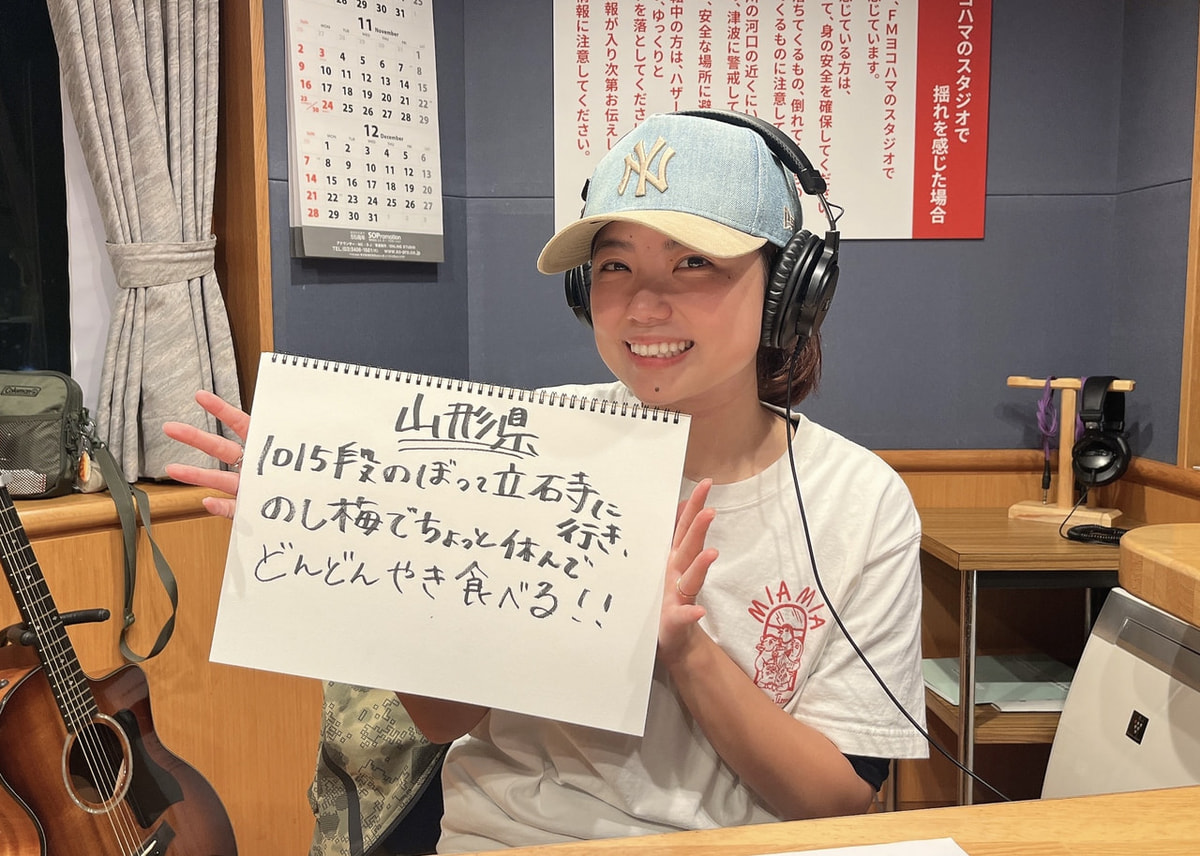 山形県
1015段のぼって立石寺に
行き、
のし梅でちょっと休んで
どんどんやき食べる!!
コハマのスタジオで
揺れを感じた場合
、FMヨコハマのスタジオで
じています。
感じている方は、
て、身の安全を確保してください
落ちてくるもの、倒れて
くるものに注意して
川の河口の近くにい
、津波に警戒して
、安全な場所に避
転中の方は、ハザー
、ゆっくりと
を落としてくださ
報が入り次第お伝えし
情報に注意してください。
30 31
11 November
1
2 3 4 5 6 7 8
9 10 11 12 13 14 15
16 17 18 19 20 21 22
23/30 24 25 26 27 28 29
12 December
1 2 3 4 5 6
7 8 9 10 11 12 13
14 15 16 17 18 19 20
21 22 23 24 25 26 27
28 29 30 31
SOPromotion
NY
MIAMIA
Coleman